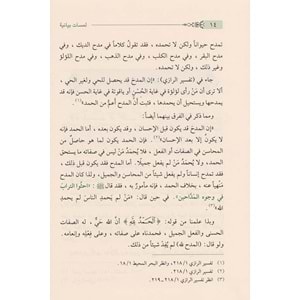 ١٤
لمسات بيانية
تمدح حيواناً ولكن لا تحمده، فقد تقول كلاماً في مدح الديك، وفي
مدح البقر، وفي مدح الكلب، وفي مدح الذهب، وفي مدح اللؤلؤ
وغير ذلك ولكن لا تحمده.
جاء في (تفسير الرازي): «إن المدح قد يحصل للحي ولغير الحي،
ألا ترى أن مَنْ رأى لؤلؤة في غاية الحُسْن أو ياقوتة في غاية الحسن فإنه قد
يمدحها ويستحيل أن يحمدها، فثبت أنَّ المدح أعم من الحمد»(١).
ومما ذكر في الفرق بينهما أيضاً:
«إن المدح قد يكون قبل الإحسان، وقد يكون بعده، أما الحمد فإنه
لا يكون إلا بعد الإحسان»(٢). فإن الحمد يكون لما هو حاصل من
المحاسن في الصفات أو الفعل، فلا يُحمدُ مَنْ ليس في صفاته ما يستحق
الحمد، ولا يُحمدُ مَنْ لم يفعل جميلاً. أما المدح فقد يكون قبل ذلك،
فقد تمدح إنساناً ولم يفعل شيئاً من المحاسن والجميل، ولذا كان المدح
منهياً عنه، بخلاف الحمد، فإنه مأمور به، فقد قال ﷺ: «احثُوا التراب
في وجوه المدّاحين». في حين قال: «من لم يحمد الناس لم يحمد
الله»(٣).
وبذا علمنا من قوله: ﴿الْحَمْدُ لِلَّهِ﴾ أنَّ الله حيٌّ، له الصفات
الحسنى والفعل الجميل، فحمدناه على صفاته، وعلى فِعْلِه وإنعامه.
ولو قال: (المدح لله) لم يُفد شيئاً من ذلك.
(١) تفسير الرازي ٢١٨/١، وانظر البحر المحيط ١٨/١.
(٢) تفسير الرازي ٢١٨/١.
(٣) تفسير الرازي ٢١٨/١-٢١٩.